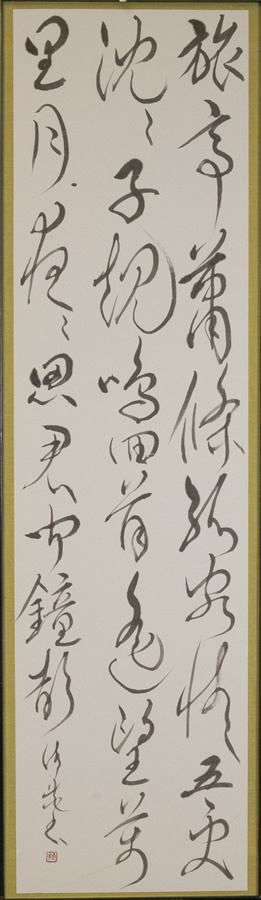 旅亭蕭條孤客情五更
沈々子規鳴回首遥望萬
里月夜々思君聞鐘聲